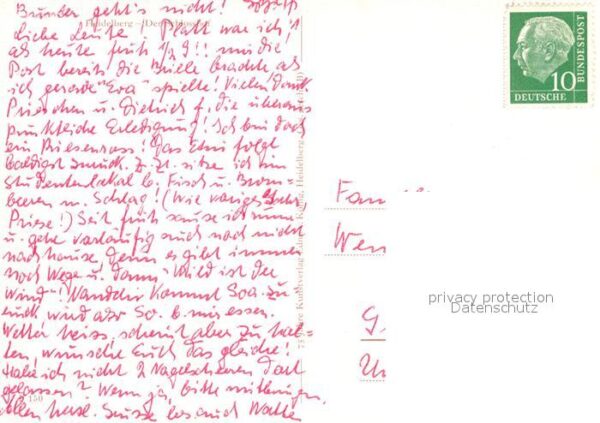 Bunter geht's nicht!
Heidelberg
Liebe Leute! Platt war ich,
als heute früh 1/2 9!! mir die
Post bereits die Brille brachte als
ich gerade "Eva" spielte! Vielen Dank
Prieschen u. Dietrich f. die überaus
pünktliche Erledigung! Ich bin doch
ein Riesenross! Das Etui folgt
baldigst zurück. Z. Zt. sitze ich im
Studentenlokal b. Fisch u. Brom-
beeren m. Schlag! (Wie voriges Jahr
Priese!) Seit früh sause ich rum
u. gehe vorläufig auch noch nicht
nachhause, denn es gibt immer
noch Wege u. dann "Wild ist der
Wind"! Kommt Soa. zu-
rück wird also So. b. mir essen.
Wetter heiss, scheint aber zu hal-
ten, wünsche Euch das gleiche!
Habe ich nicht 2 Nagelscheren dort
gelassen? Wenn ja, bitte mitbringen.
Allen herzl. Grüsse bes. auch
150
Kunstverlag Edm. König, Heidelberg
DEUTSCHE BUNDESPOST
10
Fam
Wen
G
privacy protection
Datenschutz